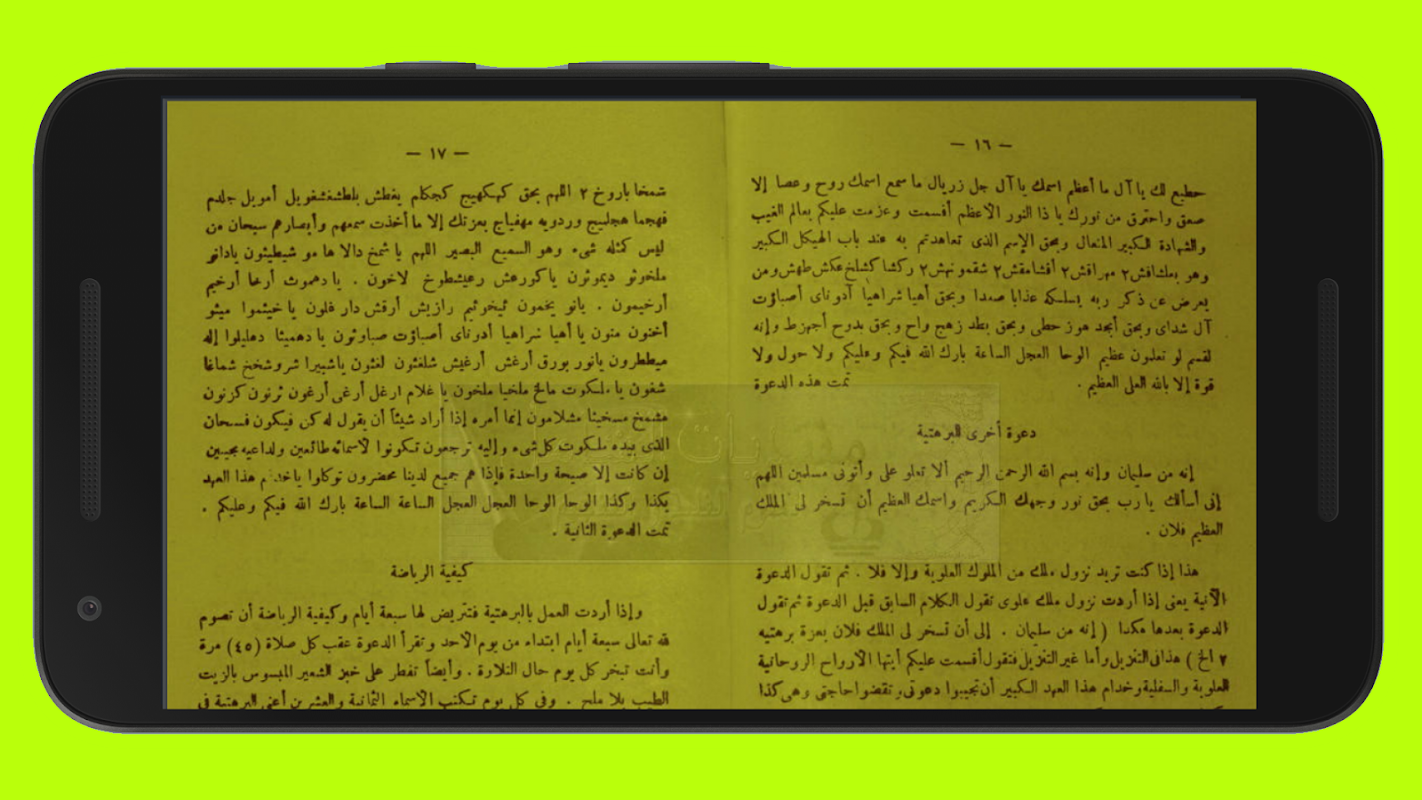 — ١٦ —
حطيع لك يا آل ما أعظم اسمك يا آل جل زريال ما سمع اسمك روح وعصا إلا
صعق واحترق من نورك يا ذا النور الأعظم أقسمت وعزمت عليكم بعالم الغيب
والشهادة الكبير المتعال وبحق الإسم الذى تعاهدتم به عند باب الهيكل الكبير
وهو بعلشاقش ٢ مهراقش ٢ أقشامقش ٢ شقمونهش ٢ ركشا كشلخ عكش طهش ومن
يعرض عن ذكر ربه يسلكه عذابا صعدا وبحق أهيا شراهيا أدوناى أصباؤت
آل شداى وبحق أبجد هوز حطى وبحق بطد زهج واح وبحق بدوح أجهزط وإنه
لقسم لو تعلمون عظيم الوحا العجل الساعة بارك الله فيكم وعليكم ولا حول ولا
قوة إلا بالله العلى العظيم . تمت هذه الدعوة
دعوة أخرى للبرهتية
إنه من سليمان وإنه بسم الله الرحمن الرحيم ألا تعلو على وأتونى مسلمين اللهم
إنى أسألك يا رب بحق نور وجهك الكريم واسمك العظيم أن تسخر لى الملك
العظيم فلان .
هذا إذا كنت تريد نزول ملك من الملوك العلوية وإلا فلا . ثم تقول الدعوة
الآتية يعنى إذا أردت نزول ملك علوى تقول الكلام السابق قبل الدعوة ثم تقول
الدعوة بعدها هكذا ( إنه من سليمان . إلى أن تسخر لى الملك فلان بعزة برهتيه
٢ الخ ) هذا فى التنزيل وأما غير التنزيل فتقول أقسمت عليكم أيتها الأرواح الروحانية
العلوية والسفلية وخدام هذا العهد الكبير أن تجيبوا دعوتى وتقضوا حاجتى وهى كذا
— ١٧ —
شمخا باروخ ٢ اللهم بحق كهكهيج كجكلم يغطش بلطشغشغويل أمويل جلدم
فهجما هجلميج وردويه مهفياج بعزتك إلا ما أخذت سمعهم وأبصارهم سبحان من
ليس كمثله شىء وهو السميع البصير اللهم يا شمخ دالا ها مو شيطيثون يادانو
ملخوثو ديموثون ياكورعش رعيشطوخ لاخون . يا دهموث أرخا أرخيم
أرخيمون . يانو يخمون ثيخوثيم رازيش أرقش دار فلون يا خيثموا ميثو
أخنون منون يا أهيا شراهيا أدوناى أصباؤت صباوثون يا دهميثا دهليلوا إله
ميططرون يانور بورق أرغش أرغيش شلغثون لغثون ياشبيرا شروشخخ شماغا
شغون يا ملكوت مالخ ملخيا ملخون يا غلام ارغل أرغى أرغون ثرنون كزنون
مشمخ مسخيثا مشلامون إنما أمره إذا أراد شيئاً أن يقول له كن فيكون فسبحان
الذى بيده ملكوت كل شىء وإليه ترجعون تكونوا لأسمائه طائعين ولداعيه مجيبين
إن كانت إلا صيحة واحدة فإذا هم جميع لدينا محضرون توكلوا ياخدام هذا العهد
بكذا وكذا الوحا الوحا العجل العجل الساعة الساعة بارك الله فيكم وعليكم .
تمت الدعوة الثانية .
كيفية الرياضة
وإذا أردت العمل بالبرهتية فتتريض لها سبعة أيام وكيفية الرياضة أن تصوم
لله تعالى سبعة أيام ابتداء من يوم الأحد وتقرأ الدعوة عقب كل صلاة (٤٥) مرة
وأنت تبخر كل يوم حال التلاوة . وأيضاً تفطر على خبز الشعير المبسوس بالزيت
الطيب بلا ملح . وفى كل يوم تكتب الأسماء الثمانية والعشرين أعنى البرهتية فى